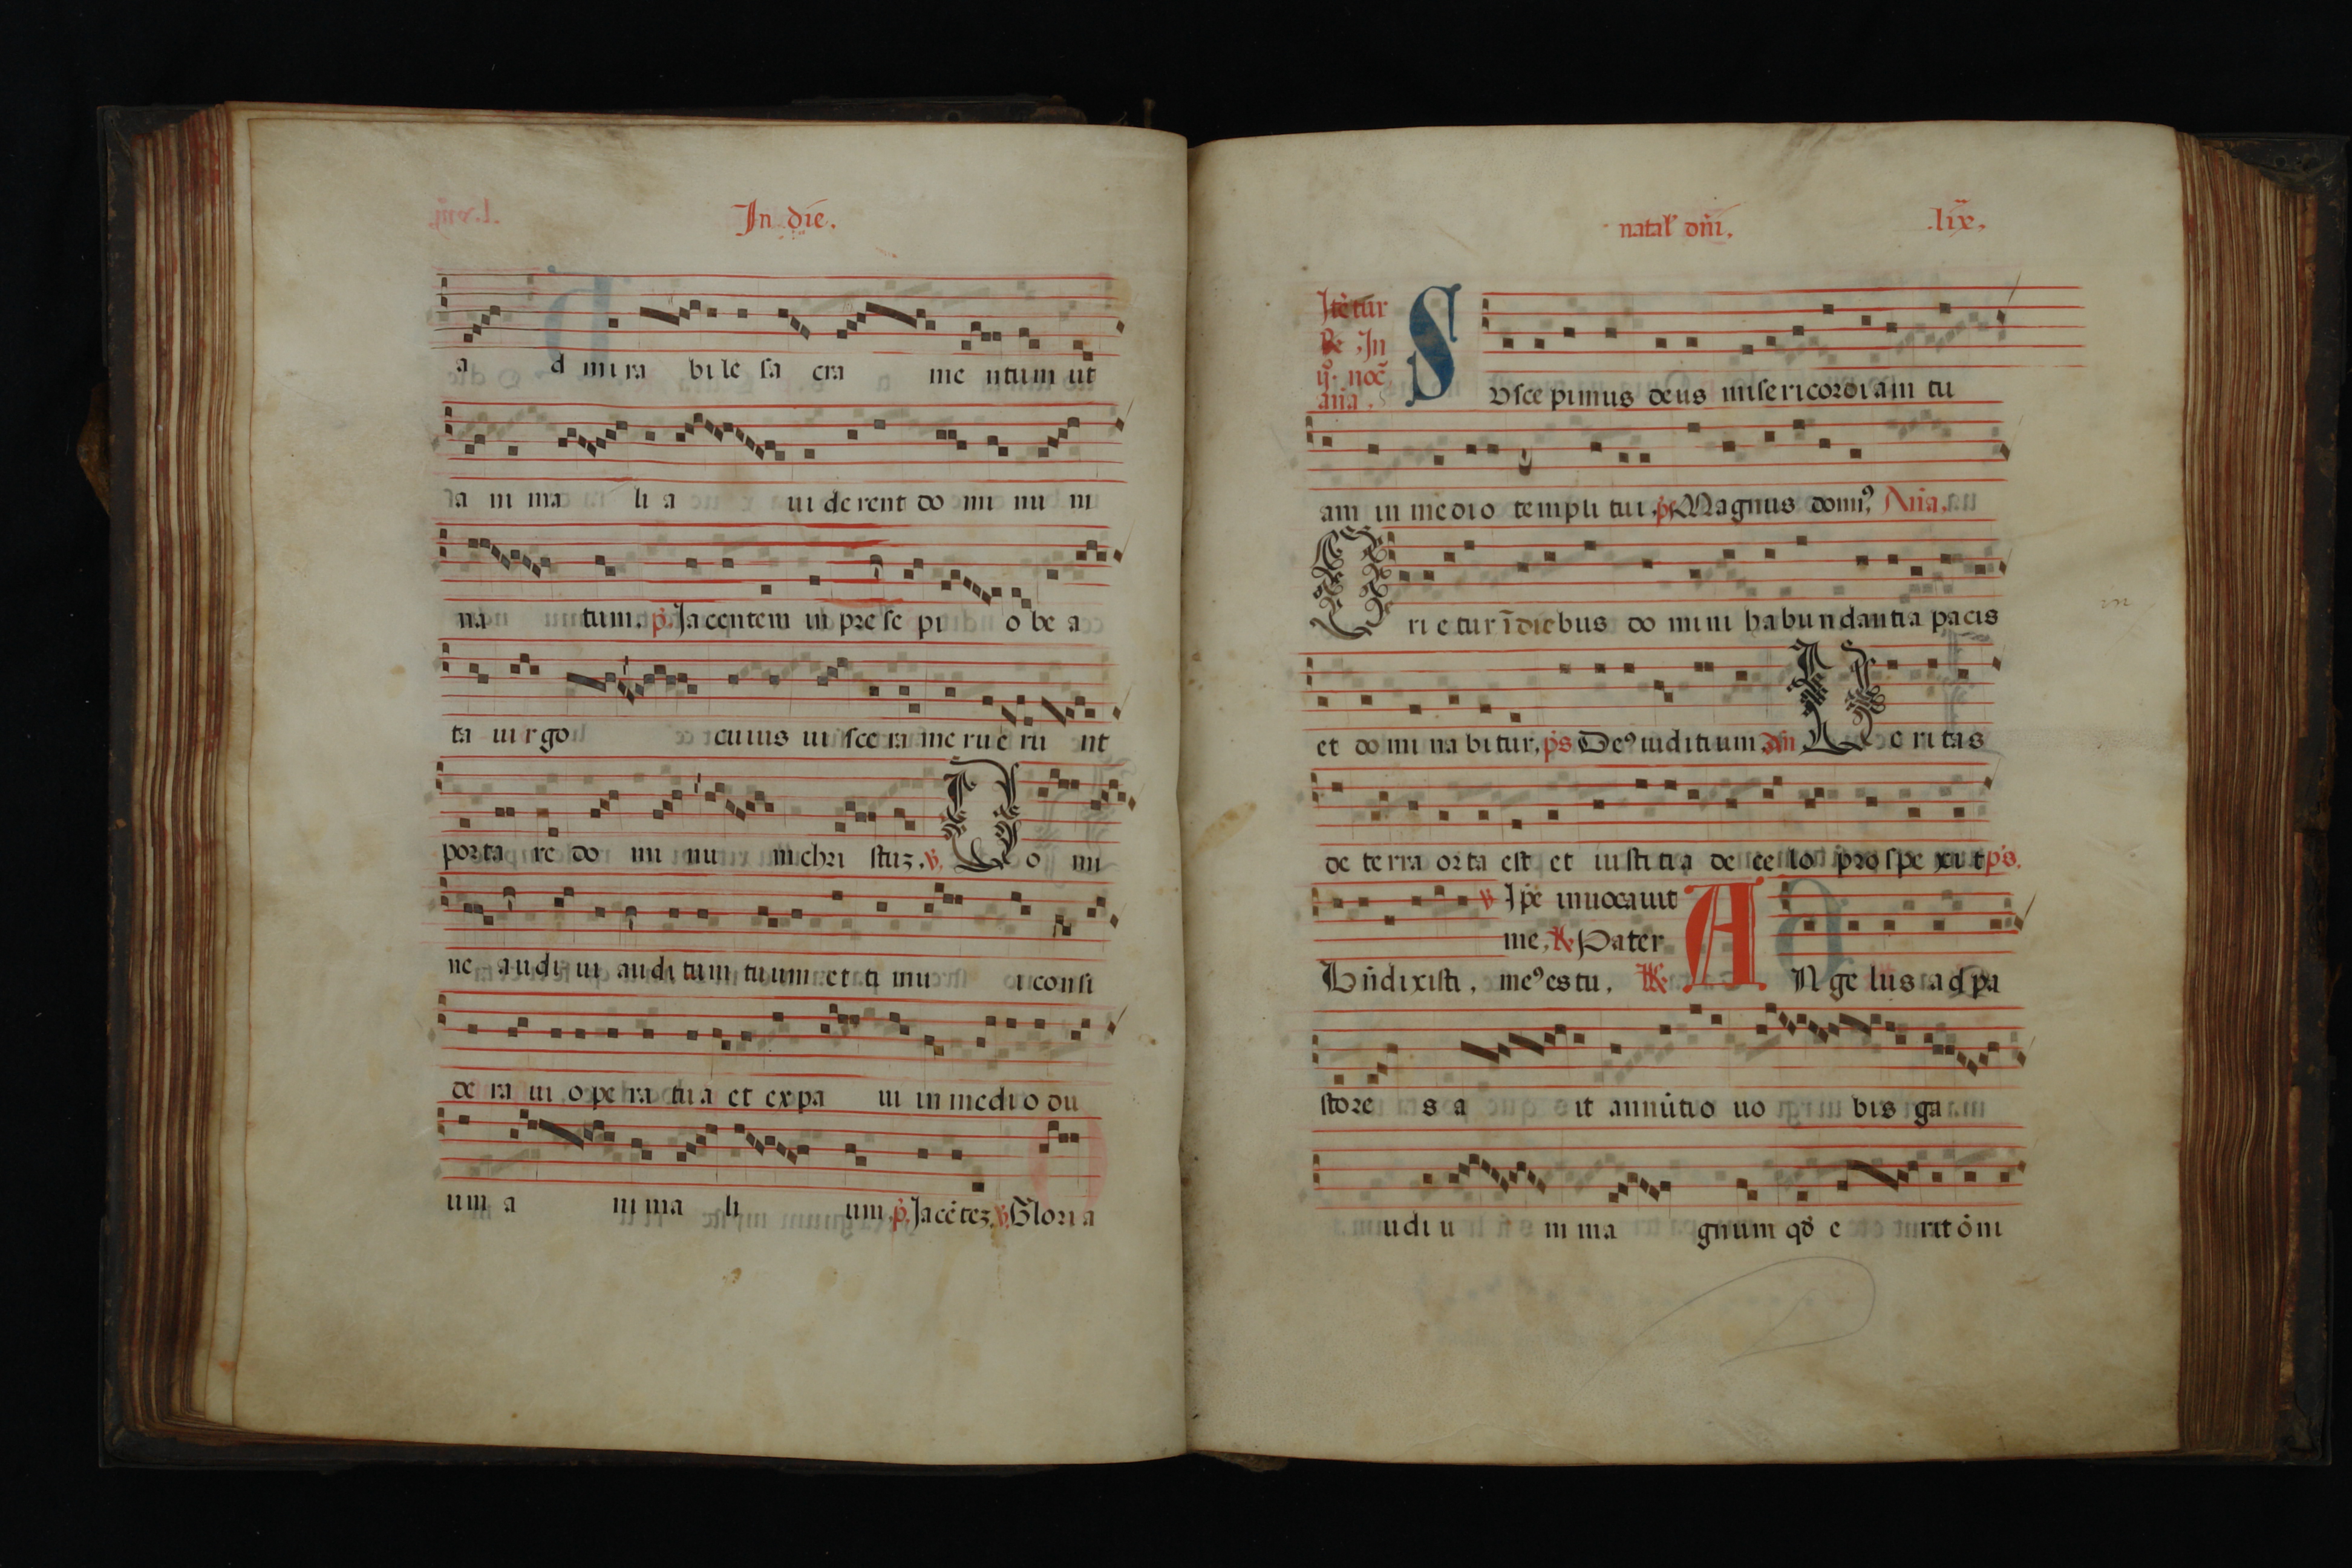 In die.
a d mi ra bi le sa cra me ntum ut
a ni ma li a ui de rent do mi nu m
na tum. p. Ja centem in pre se pi o be a
ta uirgo cuius ui sce ra me rue ru nt
porta re do mi nu m chri stuz. v. Do mi
ne audi ui auditum tuum et ti mu i consi
de ra ui opera tua et expa ui in medio du
um a ni ma li um. p. Jacētez. v. Gloria
natal' dñi. .lix.
Itētur
Re In
ij. noc̄
aña.
Suscepimus deus misericordiam tu
am in medio templi tui. ps Magnus domi9 Aña.
Orietur ī diebus do mini habundantia pacis
et do mi na bitur. ps De9 iuditium An Ueritas
de terra orta est et iustitia de ce lo prospe xit ps.
v Ipē inuocauit
me, R Pater
Bñdixisti. me9 es tu. R Angelus ad pa
store s a it annūtio uo bis ga
udi u m ma gnum qđ e rit ōni